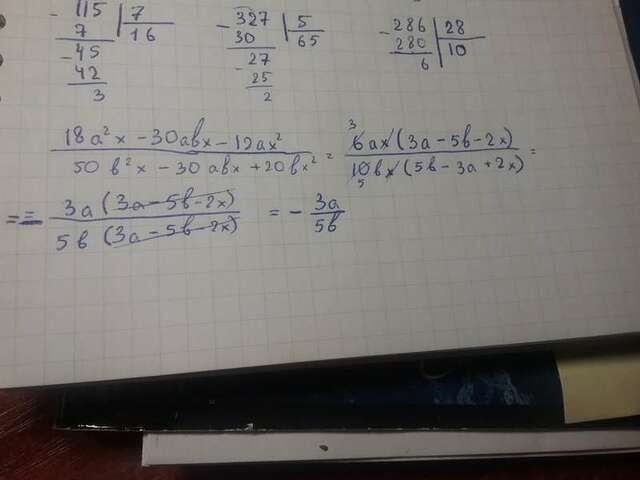 - 115 | 7
7 | 16
- 45
42
3
- 327 | 5
30 | 65
27
- 25
2
- 286 | 28
280 | 10
6
18a²x - 30abx - 12ax² / 50b²x - 30abx + 20bx² = 3 6ax(3a - 5b - 2x) / 10bx(5b - 3a + 2x) 5 =
= - 3a(3a - 5b - 2x) / 5b(3a - 5b - 2x) = - 3a / 5b